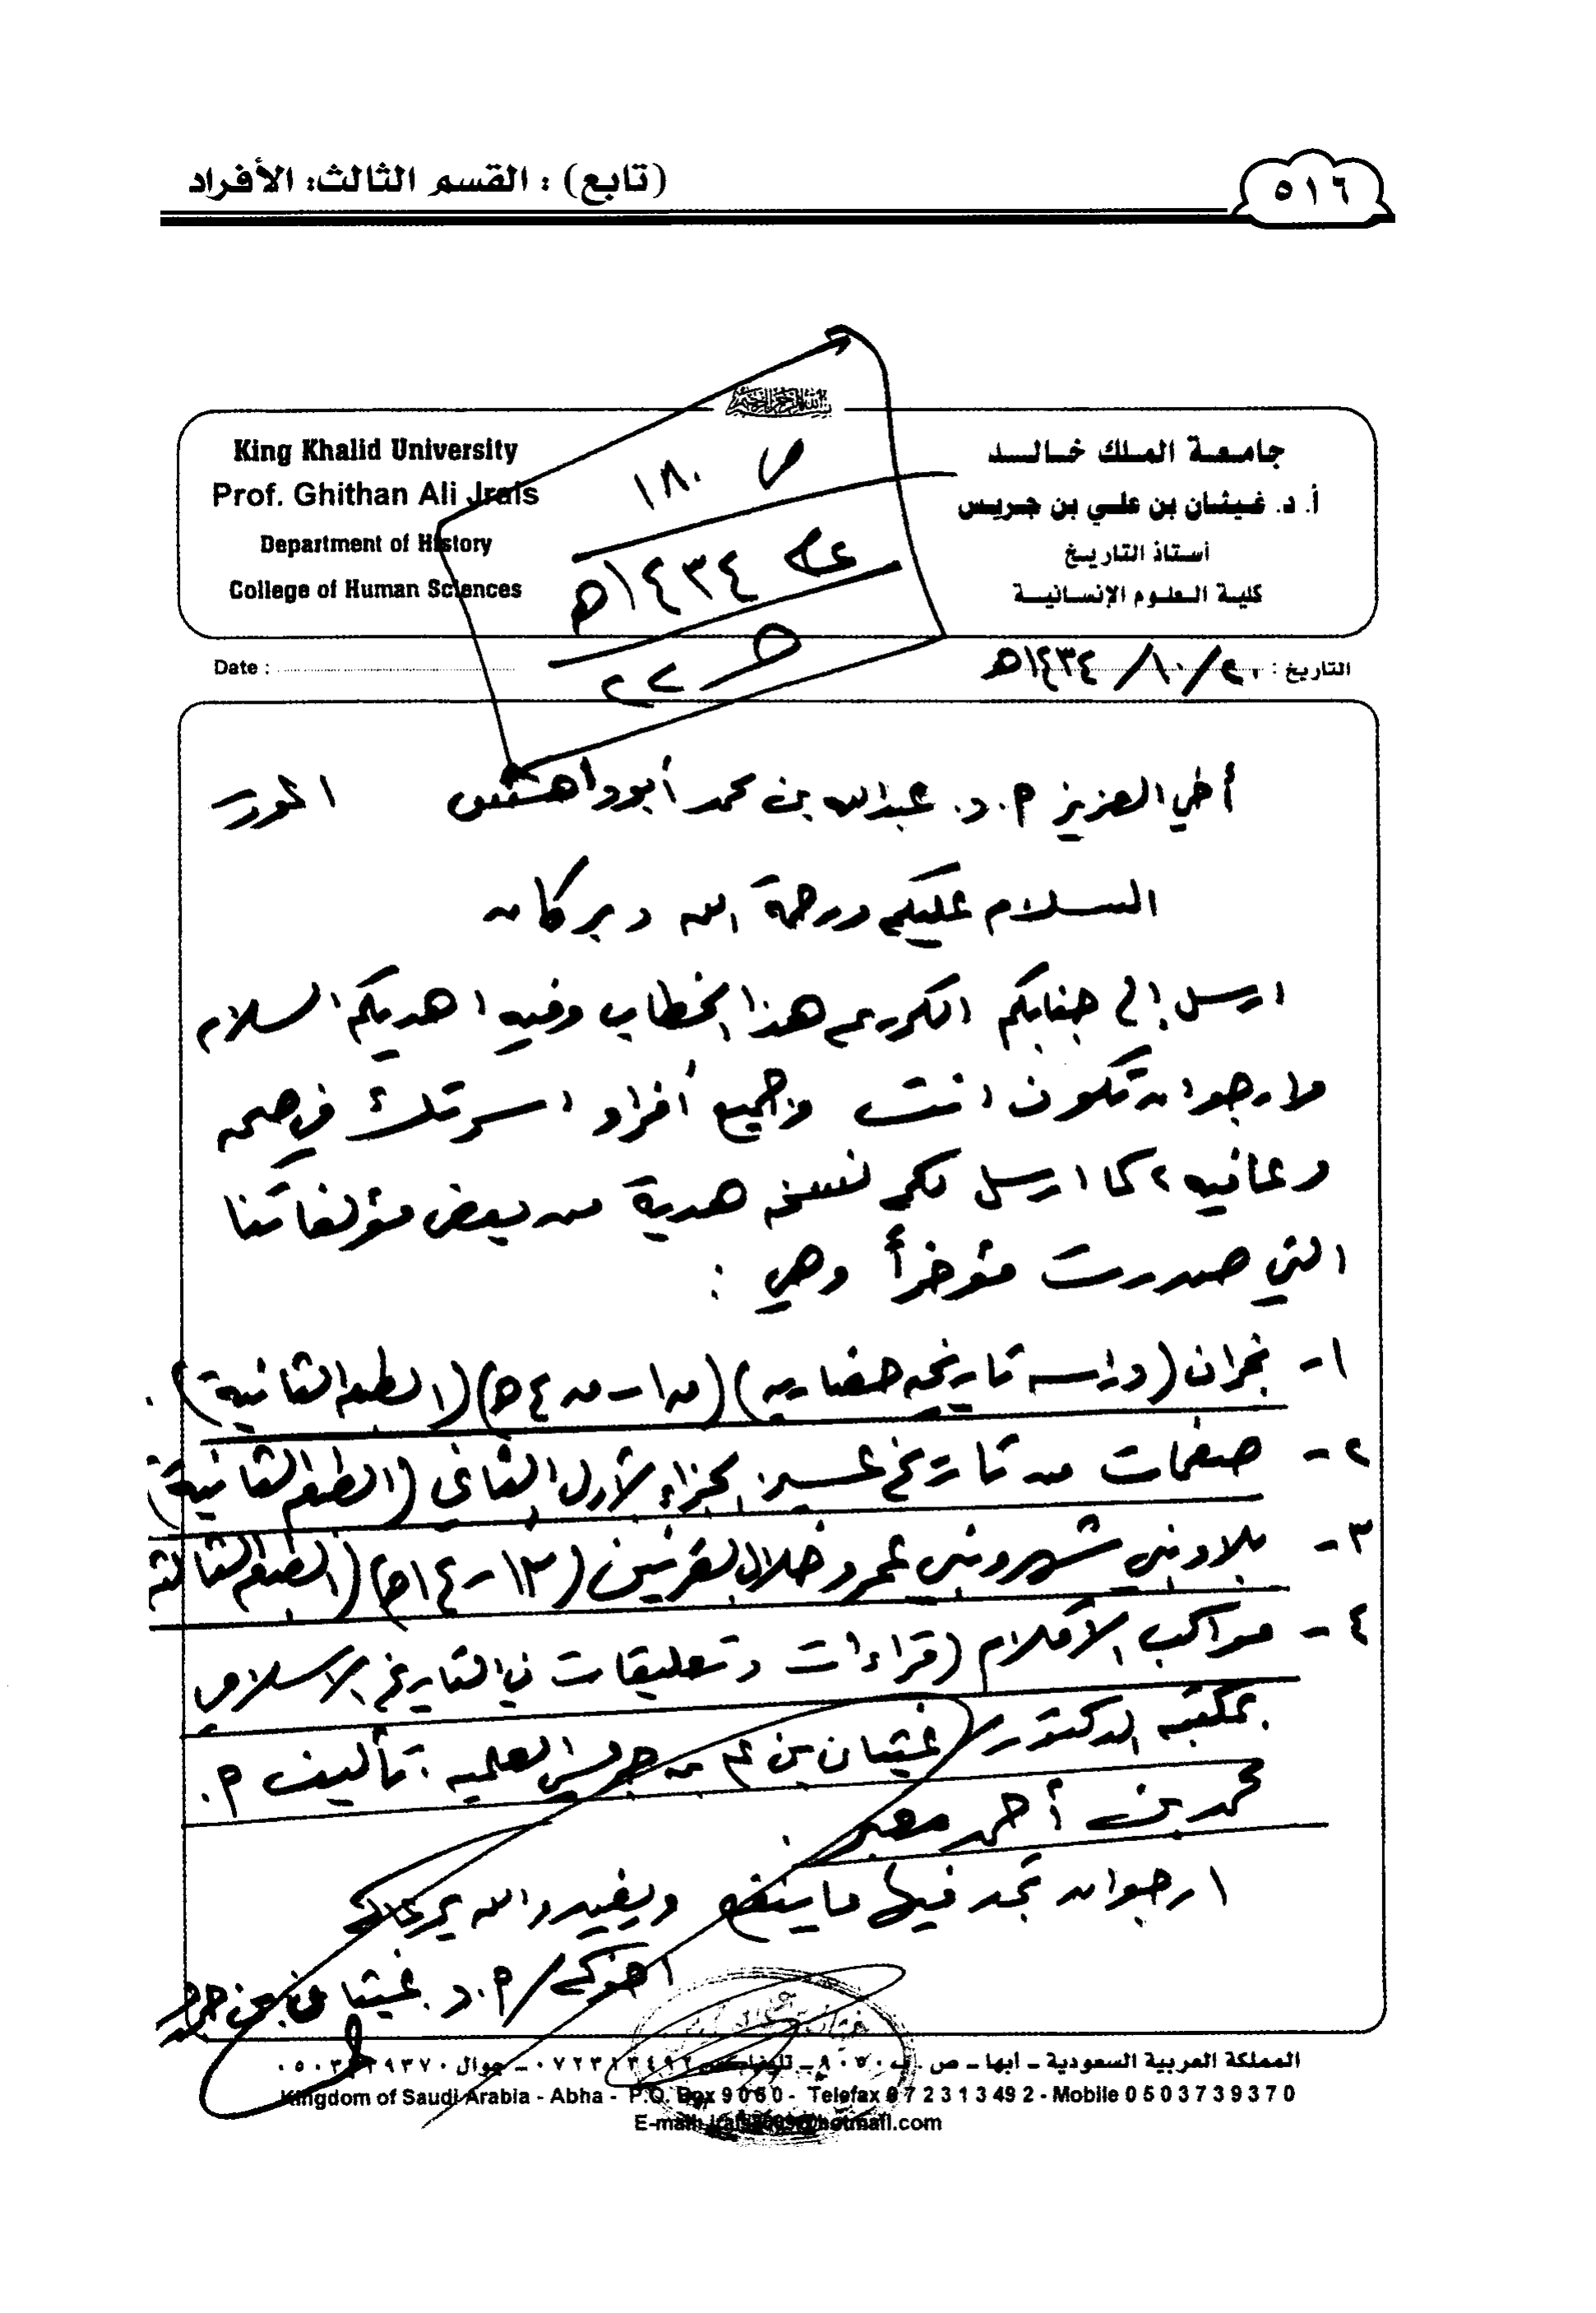 ٥١٦
(تابع) : القسم الثالث: الأفراد
بسم الله الرحمن الرحيم
King Khalid University
Prof. Ghithan Ali Jrais
Department of History
College of Human Sciences
جامعة الملك خالد
أ. د. غيثان بن علي بن جريس
أستاذ التاريخ
كلية العلوم الإنسانية
ص ١٨٠
عام ١٤٣٤هـ
حـ ٢٢
Date :
التاريخ : ٢٠/ ١٠/ ١٤٣٤هـ
أخي العزيز أ.د. عبدالله بن محمد أبوداهش الموقر
السلام عليكم ورحمة الله وبركاته
ارسل إلى جنابكم الكريم هذا الخطاب وفيه اهديكم السلام
وارجوا ان تكون انت وجميع أفراد اسرتك في صحه
وعافيه، كما ارسل لكم نسخه هدية من بعض مؤلفاتنا
التي صدرت مؤخراً وهي :
١- نجران (دراسه تاريخيه حضاريه) (ق١ - ق٤هـ) (الطبعه الثانية).
٢- صفحات من تاريخ عسير: الجزاء الأول والثاني (الطبعه الثانية)
٣- بلاد بني شهر وبني عمرو خلال القرنين (١٣-١٤هـ) (الطبعه الثالثه
٤- مواكب الأقلام (قراءات وتعليقات في التاريخ الاسلامي
بمكتبه الدكتور/ غيثان بن علي بن جريس العلميه. تأليف أ.
محمد بن أحمد معبر.
ارجوا ان تجد فيها ما ينفع ويفيد والله يرعاك
اخوكم/ أ.د. غيثان بن جريس
المملكة العربية السعودية - أبها - ص . ب ٩٠٥٠ - تليفاكس ٠٧٢٣١٣٤٩٢ - جوال ٠٥٠٣٧٣٩٣٧٠
Kingdom of Saudi Arabia - Abha - P.O. Box 9050 - Telefax 072313492 - Mobile 0503739370
E-mail: @hotmail.com